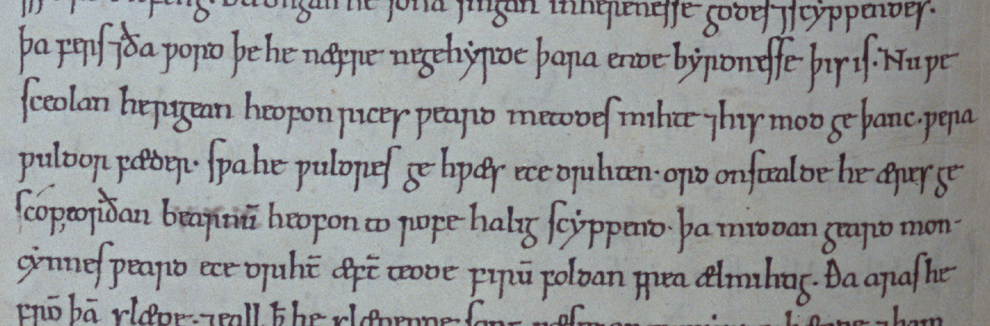 ongan he sona singan inherenesse godes ⁊scyppendes·
þa fers ⁊ða word þe he næfre negehẏrde þara ende bẏrdnesse þis is· Nu we
sceolan herigean heofon rices weard metodes mihte ⁊his mod ge þanc· wera
wuldor fæder· swa he wuldres ge hwæs ece drihten· ord onstealde he æres ge
scóp eorðan bearnū heofon to rofe halig scẏppend· þa middan geard mon-
cẏnnes weard ece driht̄ æft̄ teode firū foldan frea ælmihtig· Ða aras he
frō þā slæpe· ⁊eall ꝥ he slæpende sang